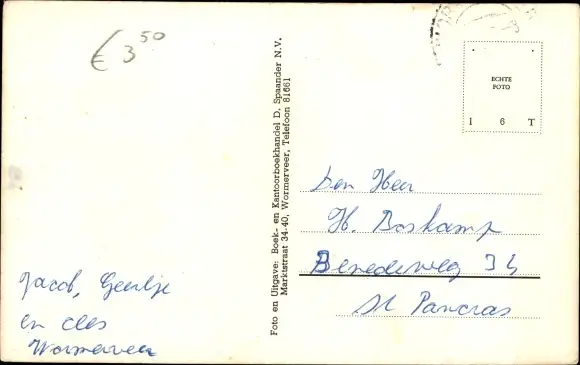 € 3 50
Jacob, Geertje
en Cees
Wormerveer
Foto en Uitgave: Boek- en Kantoorboekhandel D. Spaander N.V.
Marktstraat 34-40, Wormerveer, Telefoon 81661
ECHTE
FOTO
I 6 T
Den Heer
H. Boskamp
Benedeweg 34
St Pancras